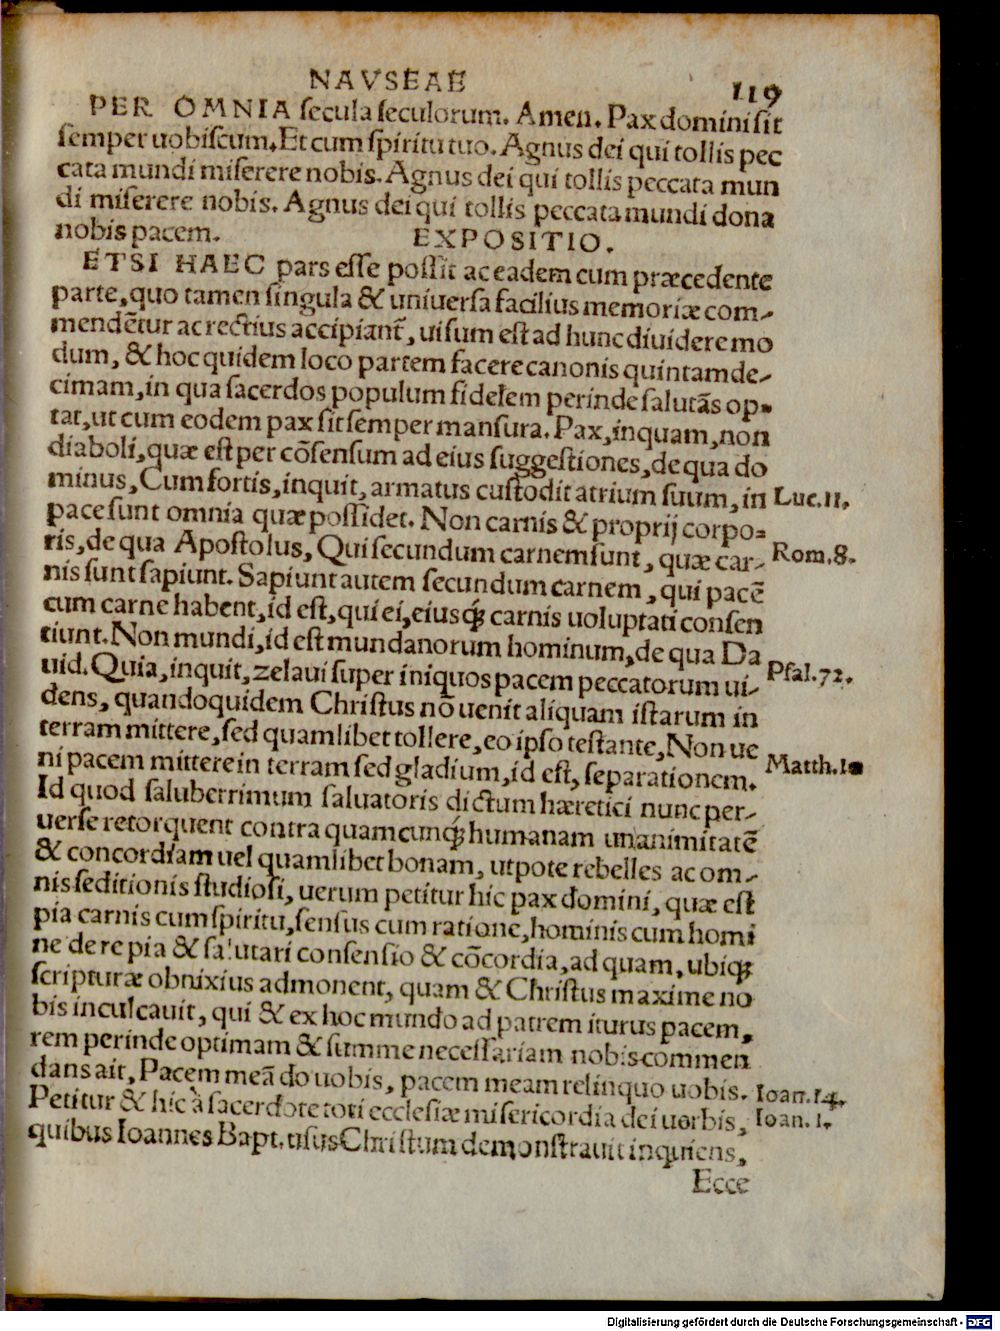 NAVSEAE 119
PER OMNIA secula seculorum. Amen. Pax domini sit
semper uobiscum. Et cum spiritu tuo. Agnus dei qui tollis pec
cata mundi miserere nobis. Agnus dei qui tollis peccata mun
di miserere nobis. Agnus dei qui tollis peccata mundi dona
nobis pacem. EXPOSITIO.
ETSI HAEC pars esse possit ac eadem cum præcedente
parte, quo tamen singula & uniuersa facilius memoriæ com-
mendētur ac rectius accipiant̃, uisum est ad hunc diuidere mo
dum, & hoc quidem loco partem facere canonis quintamde-
cimam, in qua sacerdos populum fidelem perinde salutãs op-
tat, ut cum eodem pax sit semper mansura. Pax, inquam, non
diaboli, quæ est per cõsensum ad eius suggestiones, de qua do
minus, Cum fortis, inquit, armatus custodit atrium suum, in Luc.11.
pace sunt omnia quæ possidet. Non carnis & proprij corpo-
ris, de qua Apostolus, Qui secundum carnem sunt, quæ car- Rom.8.
nis sunt sapiunt. Sapiunt autem secundum carnem, qui pacē
cum carne habent, id est, qui ei, eiusq́; carnis uoluptati consen
tiunt. Non mundi, id est mundanorum hominum, de qua Da
uid. Quia, inquit, zelaui super iniquos pacem peccatorum ui- Psal.72.
dens, quandoquidem Christus nõ uenit aliquam istarum in
terram mittere, sed quamlibet tollere, eo ipso testante, Non ue
ni pacem mittere in terram sed gladium, id est, separationem. Matth.10
Id quod saluberrimum saluatoris dictum hæretici nunc per-
uerse retorquent contra quamcunq́; humanam unanimitatē
& concordiam uel quamlibet bonam, utpote rebelles ac om-
nis seditionis studiosi, uerum petitur hic pax domini, quæ est
pia carnis cum spiritu, sensus cum ratione, hominis cum homi
ne de re pia & salutari consensio & cõcordia, ad quam, ubiq́;
scripturæ obnixius admonent, quam & Christus maxime no
bis inculcauit, qui & ex hoc mundo ad patrem iturus pacem,
rem perinde optimam & summe necessariam nobis commen
dans ait, Pacem meã do uobis, pacem meam relinquo uobis. Ioan.14.
Petitur & hic à sacerdote toti ecclesiæ misericordia dei uerbis, Ioan.1.
quibus Ioannes Bapt. usus Christum demonstrauit inquiens,
Ecce
Digitalisierung gefördert durch die Deutsche Forschungsgemeinschaft - DFG